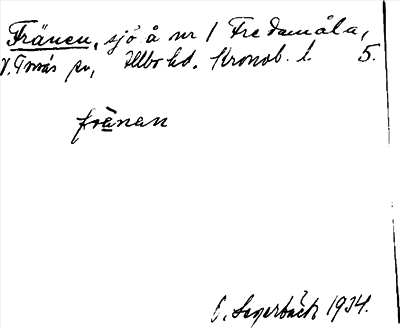 Fränen, sjö å nr 1 Fredamåla,
V. Torsås sn, Allbo hd. Kronob. l. 5.
frånan
O. Sagerbäck 1934.